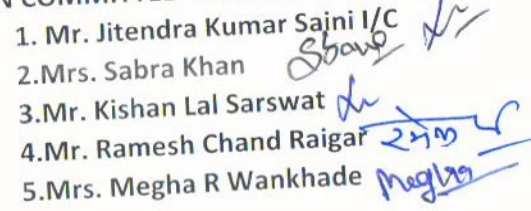 1. Mr. Jitendra Kumar Sajni I/C
2.Mrs. Sabra Khan
3.Mr. Kishan Lal Sarswat
4.Mr. Ramesh Chand Raigar रमेश
5.Mrs. Megha R Wankhade Megha